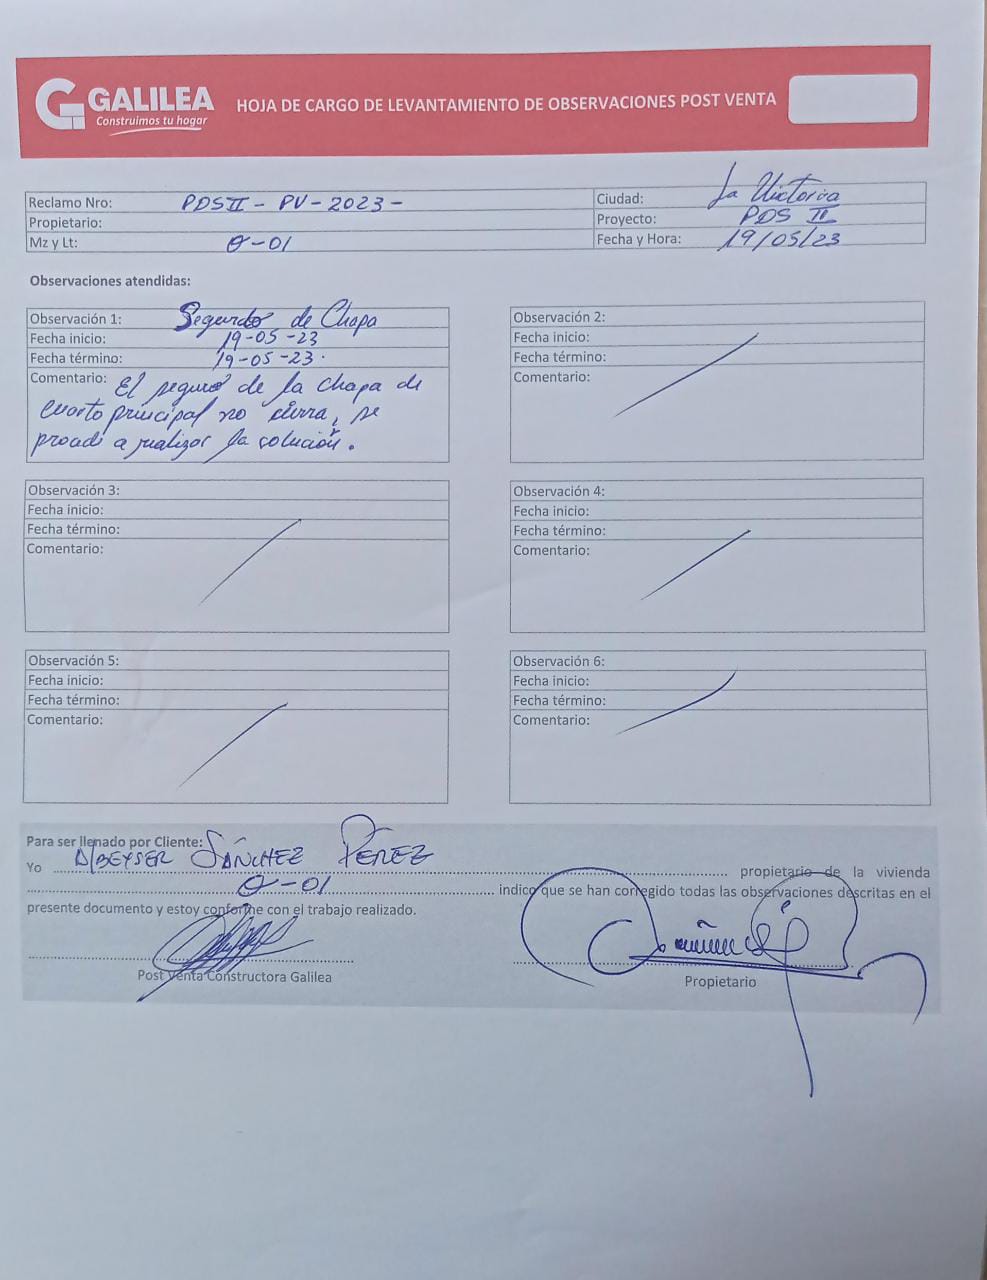 GALILEA
Construimos tu hogar
HOJA DE CARGO DE LEVANTAMIENTO DE OBSERVACIONES POST VENTA
Reclamo Nro: PDS II - PV - 2023 -
Ciudad: La Victoria
Propietario:
Proyecto: PDS II
Mz y Lt: O-01
Fecha y Hora: 19/05/23
Observaciones atendidas:
Observación 1: Seguro de Chapa
Fecha inicio: 19-05-23
Fecha término: 19-05-23.
Comentario: El seguro de la chapa de
cuarto principal no cierra, se
procedi a realizar la solución.
Observación 2:
Fecha inicio:
Fecha término:
Comentario:
Observación 3:
Fecha inicio:
Fecha término:
Comentario:
Observación 4:
Fecha inicio:
Fecha término:
Comentario:
Observación 5:
Fecha inicio:
Fecha término:
Comentario:
Observación 6:
Fecha inicio:
Fecha término:
Comentario:
Para ser llenado por Cliente:
Yo ALBEYSER SÁNCHEZ PEREZ propietario de la vivienda
O-01 indico que se han corregido todas las observaciones descritas en el
presente documento y estoy conforme con el trabajo realizado.
Post Venta Constructora Galilea
Propietario